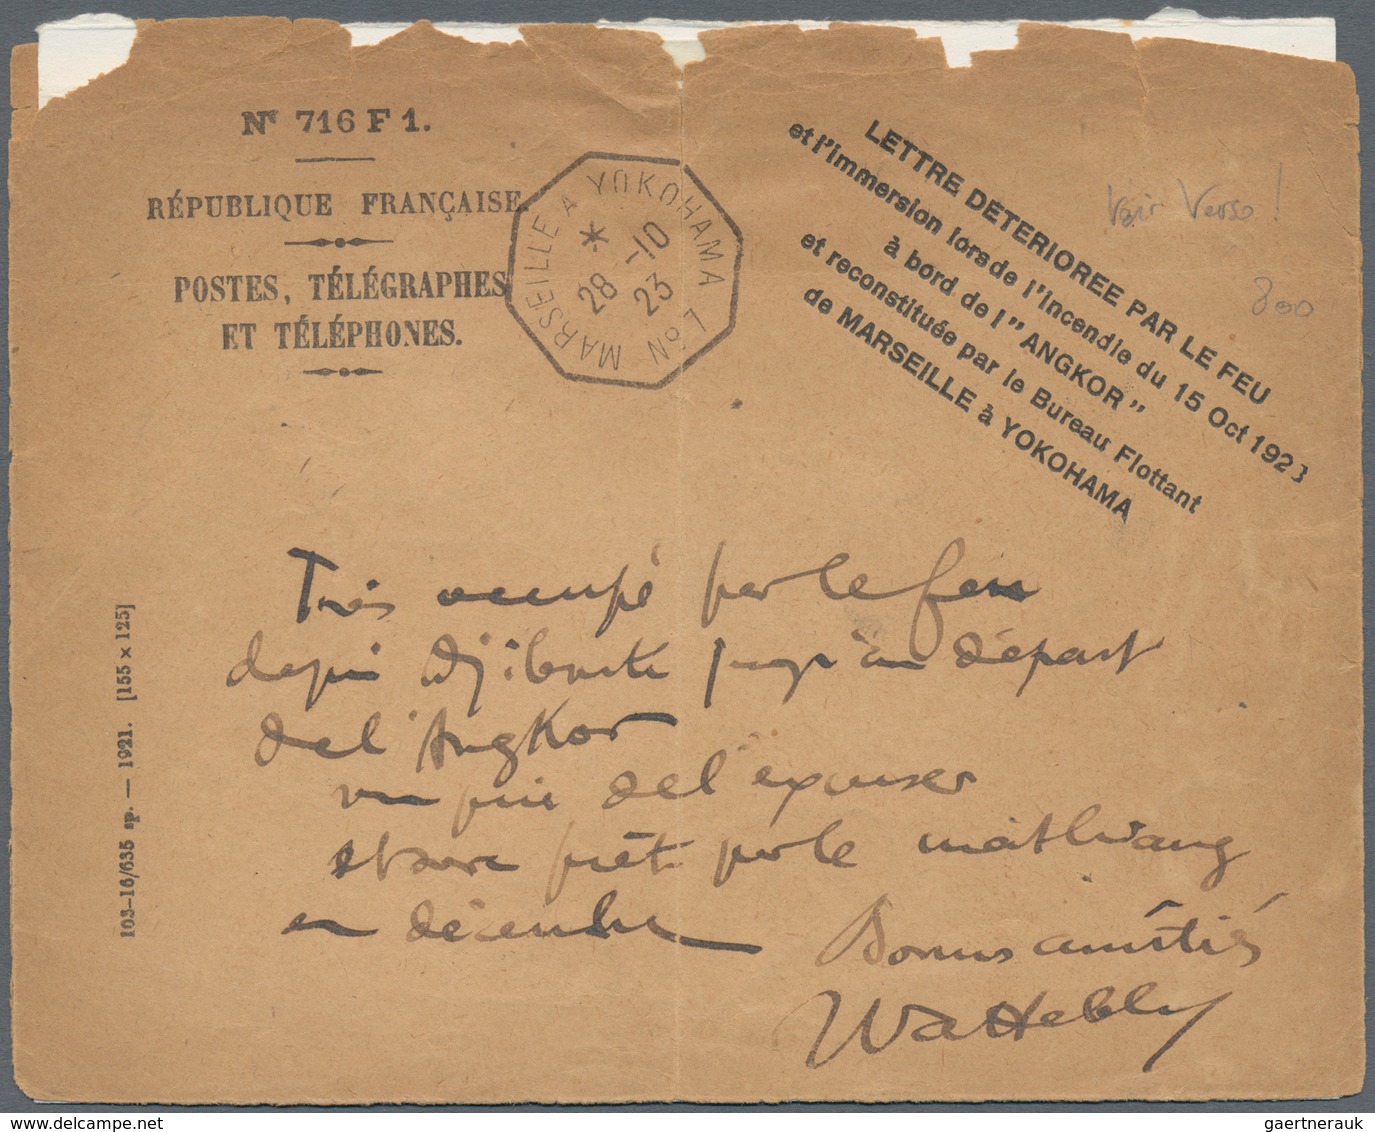 Nr 716 F 1.
RÉPUBLIQUE FRANÇAISE
POSTES, TÉLÉGRAPHES
ET TÉLÉPHONES.
MARSEILLE A YOKOHAMA
*
28 -10
23
No 7
LETTRE DETERIOREE PAR LE FEU
et l'immersion lors de l'incendie du 15 Oct 1923
à bord de l'"ANGKOR"
et reconstituée par le Bureau Flottant
de MARSEILLE à YOKOHAMA
Voir Verso !
800
103-16/635 sp. — 1921. [155 x 125]
Très occupé par le feu
depui Djibouti jusqu'au départ
de l'Angkor
de l'
prêt pr le
en décembre
Bonnes amitiés
delcampe.net
gaertnerauk